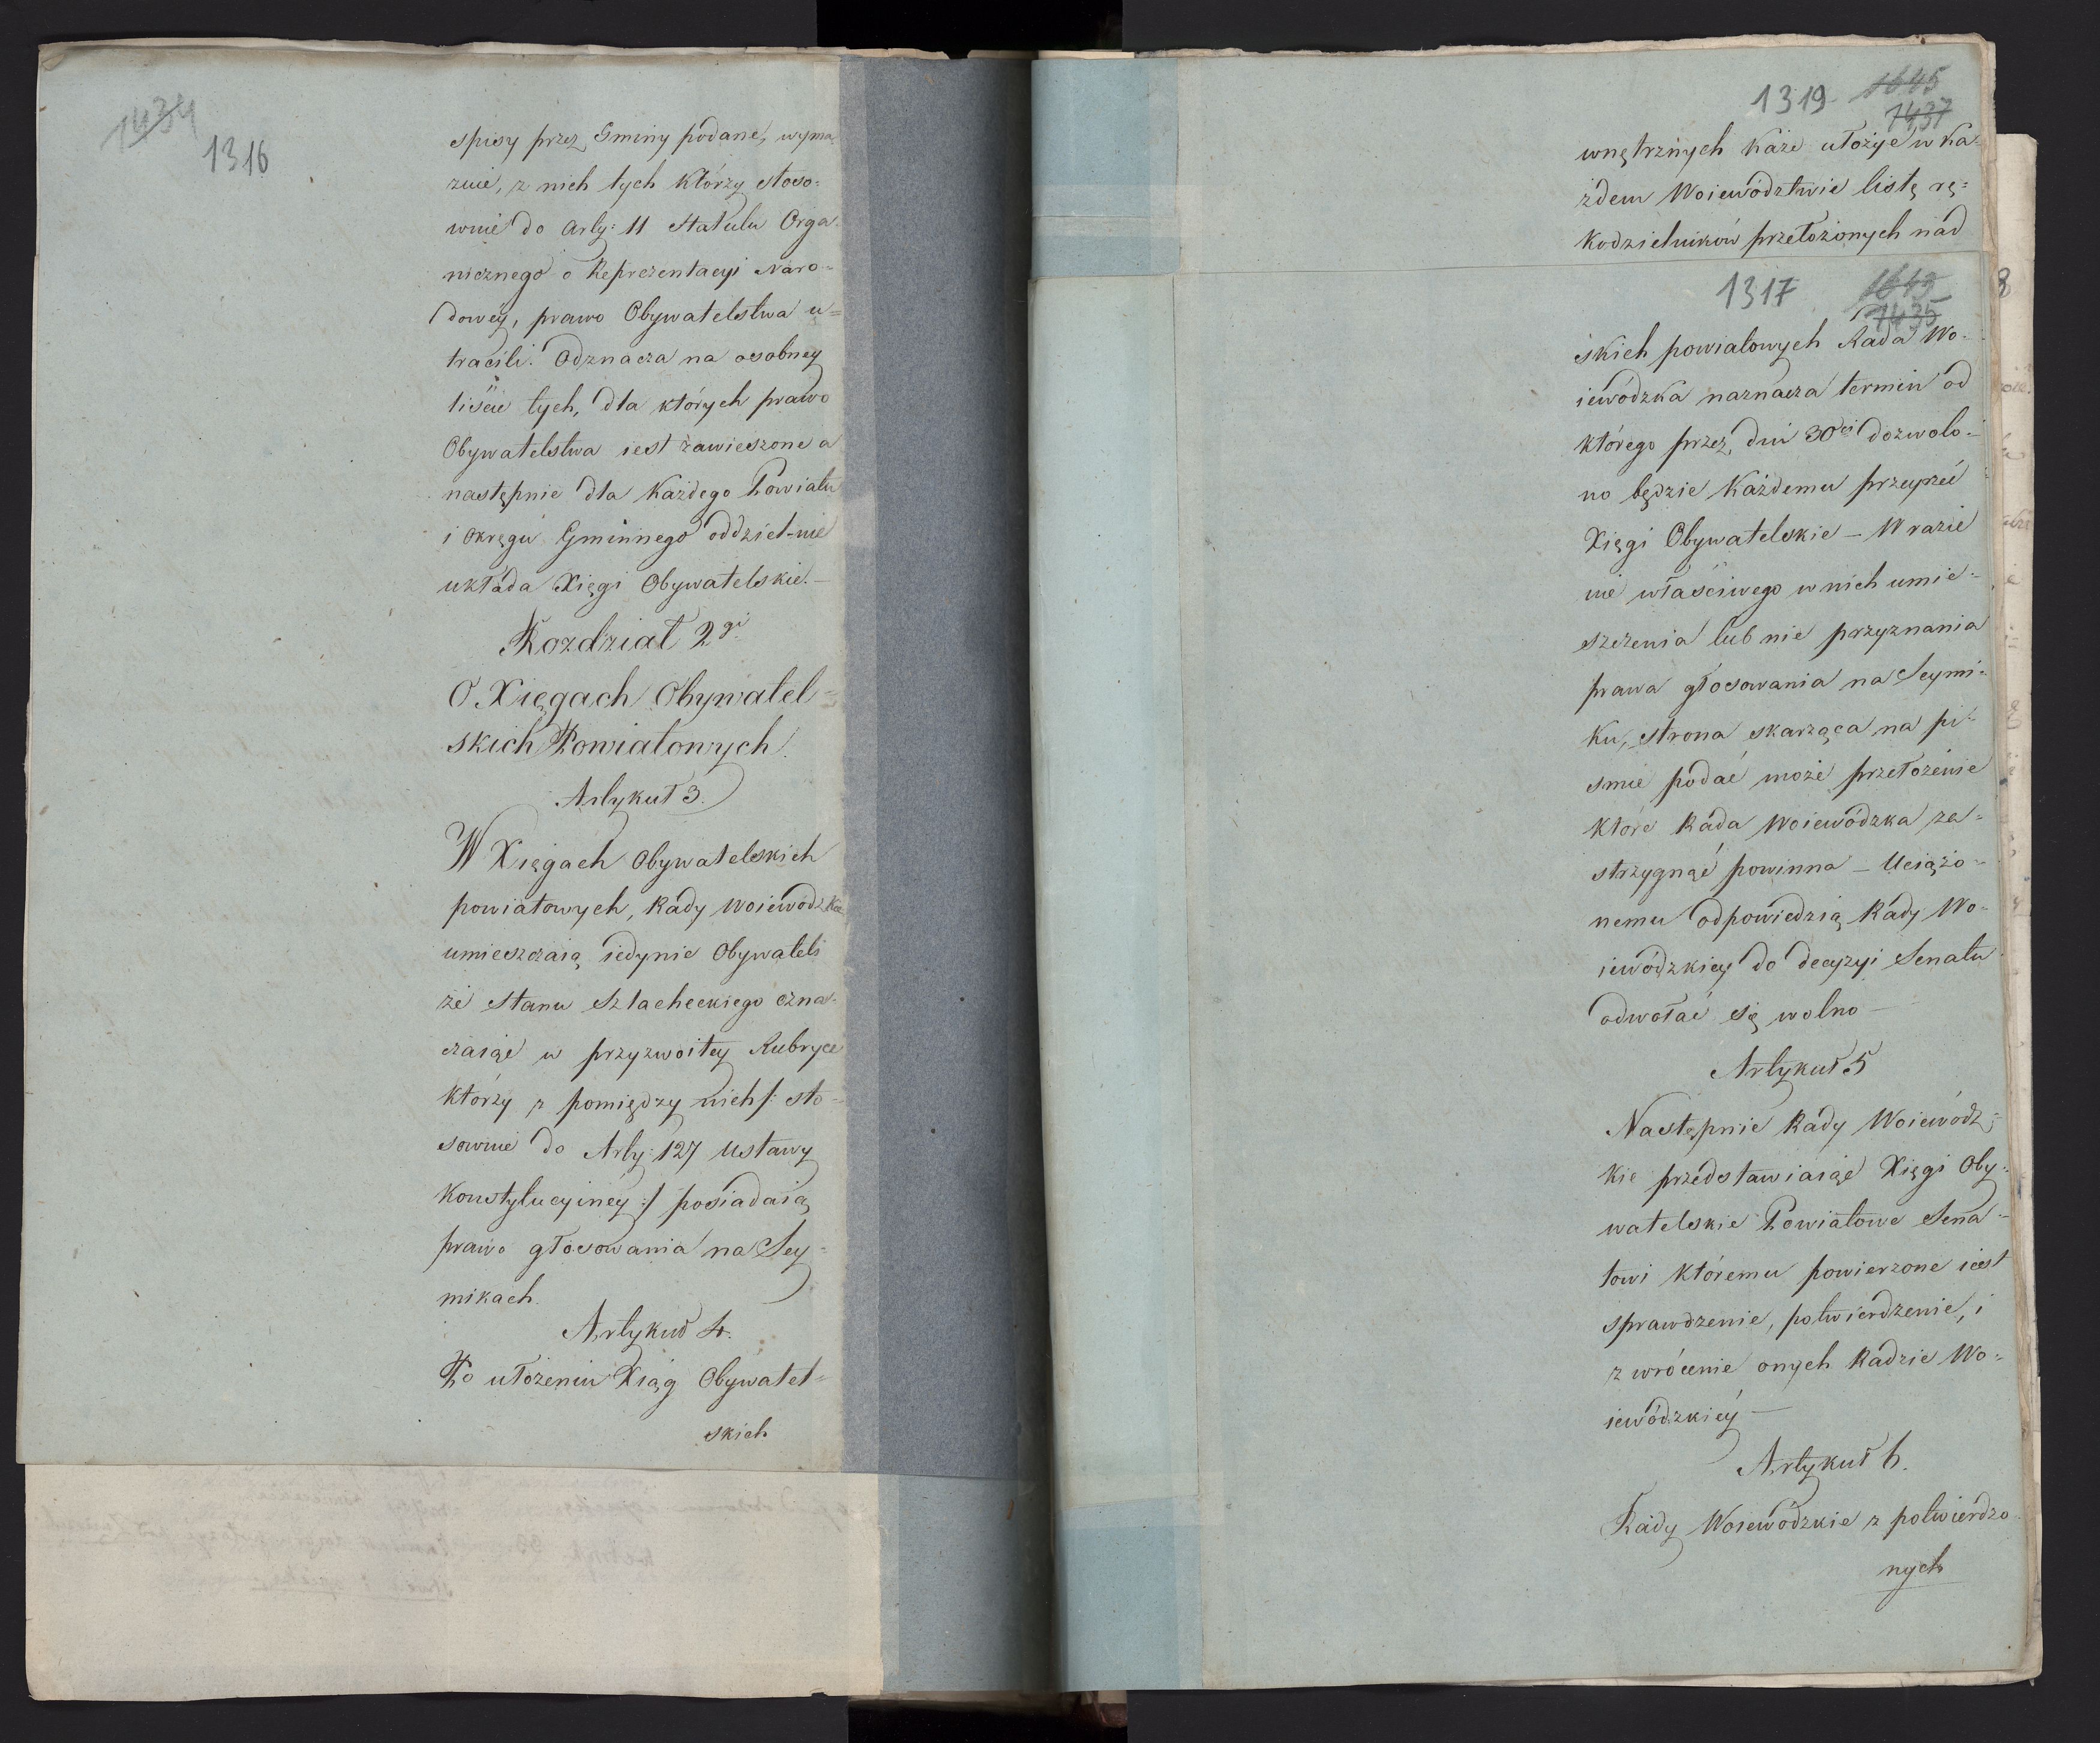 1434
1316
spisy przez Gminy podane, wyma
zuie, z nich tych którzy stoso=
wnie do Arty: 11 Statutu Orga
nicznego o Reprezentacyi Naro=
dowéy, prawo Obywatelstwa u=
tracili. Odznacza na osobney
liście tych, dla których prawo
Obywatelstwa iest zawieszone a
następnie dla każdego Powiatu
i okręgu Gminnego oddziel-nie
układa Xięgi Obywatelskie.—
Rozdział 2gi
O Xięgach Obywatel=
skich Powiatowych.
Artykuł 3.
W Xięgach Obywatelskich
powiatowych, Rady Woiewódzkie
umieszczaią iedynie Obywateli
ze stanu Szlacheckiego ozna=
czaiąc w przyzwoitey Rubryce
którzy z pomiędzy nich /: sto=
sownie do Arty: 127 Ustawy
Konstytucyinéy :/ posiadaią
prawo głosowania na Sey=
mikach.
Artykuł 4.
Po ułożeniu Xiąg Obywatel=
skich
1319 1645
1437
wnętrznych każe ułożyć w Ka=
żdem Woiewództwie listę rę=
kodzielników przełożonych nad
1317 1643
1435
skich powiatowych Rada Wo=
iewódzka naznacza termin od
którego przez dni 30ci dozwolo=
no będzie każdemu przeyrzeć
Xięgi Obywatelskie — W razie
nie właściwego w nich umie=
szczenia lub nie przyznania
prawa głosowania na Seymi=
ku, strona skarżąca na pi=
smie podać może przełożenie
które Rada Woiewódzka ro=
strzygnąć powinna — Uciążo=
nemu odpowiedzią Rady Wo=
iewódzkiey do decyzyi Senatu
odwołać się wolno —
Artykuł 5
Następnie Rady Woiewódz=
kie przedstawiaiąc Xięgi Oby=
watelskie Powiatowe Sena=
towi któremu powierzone iest
sprawdzenie, potwierdzenie, i
zwrócenie onych Radzie Wo=
iewódzkiéy —
Artykuł 6.
Rady Woiewódzkie z potwierdzo
nych